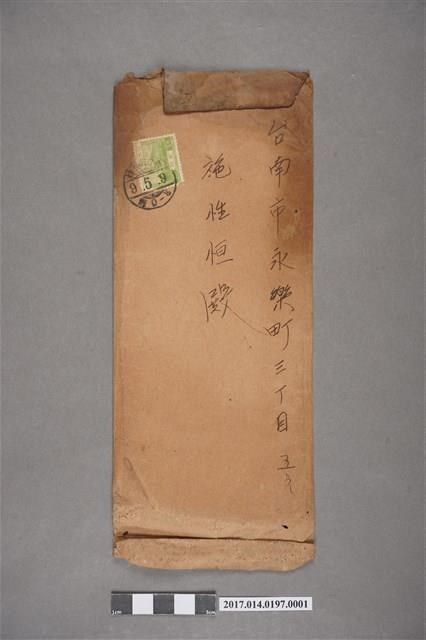 台南市永樂町三丁目五ノ
施性恒殿
9.5.9
2017.014.0197.0001
1cm
5cm